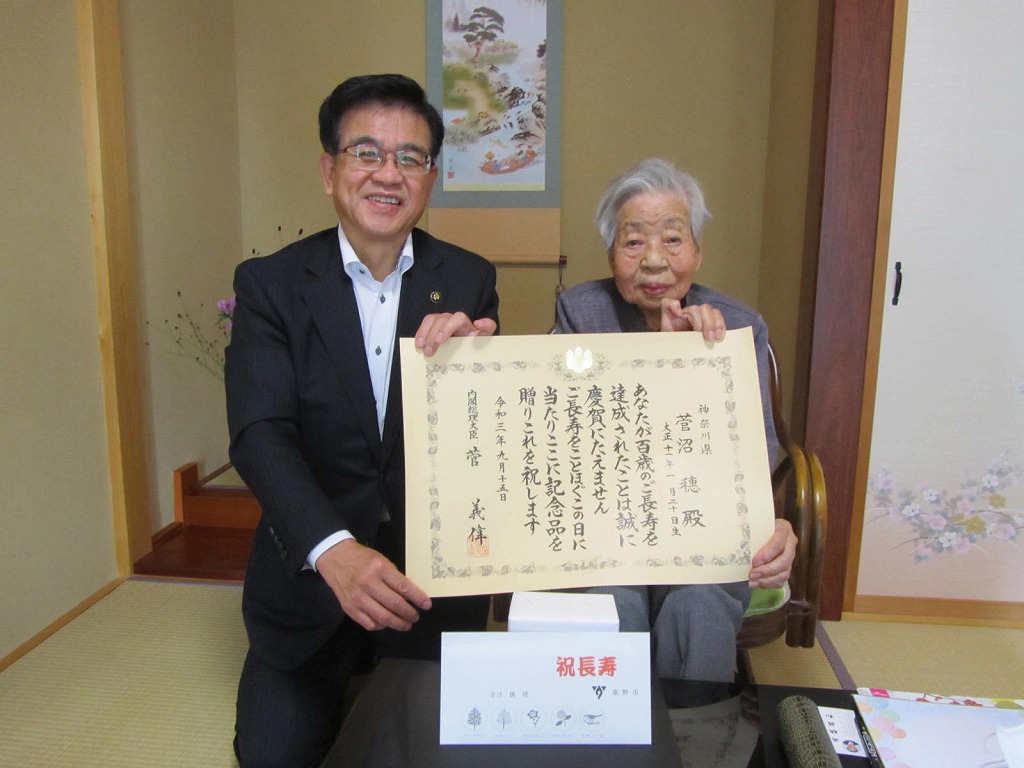 神奈川県
菅沼 穂 殿
大正十一年一月二十日生
あなたが百歳のご長寿を
達成されたことは誠に
慶賀にたえません
ご長寿をことほぐこの日に
当たりここに記念品を
贈りこれを祝します
令和三年九月十五日
内閣総理大臣 菅 義偉
祝長寿
秦野市